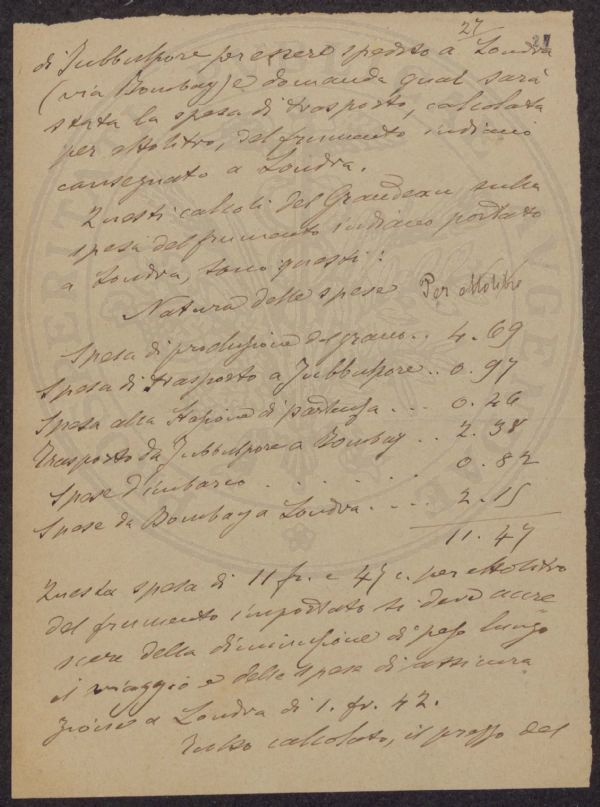 27
27
di Jubbulpore per essere spedito a Londra
(via Bombay) e domanda qual sarà
stata la spesa di trasporto, calcolata
per ettolitro, del frumento indiano
consegnato a Londra.
Questi calcoli del Grandeau sulla
spesa del frumento indiano portato
a Londra, sono questi:
Natura delle spese Per ettolitro
Spesa di produzione del grano .. 4.69
Spesa di trasporto a Jubbulpore .. 0.97
Spesa alla Stazione di partenza ... 0.46
Trasporto da Jubbulpore a Bombay .. 2.38
Spese d'imbarco . . . . . . 0.82
Spese da Bombay a Londra .... 2.15
11.47
Questa spesa di 11 fr. e 47 c. per ettolitro
del frumento importato si deve accre
scere della diminuzione di peso lungo
il viaggio e delle spese di assicura
zione a Londra di 1. fr. 42.
Tutto calcolato, il prezzo del